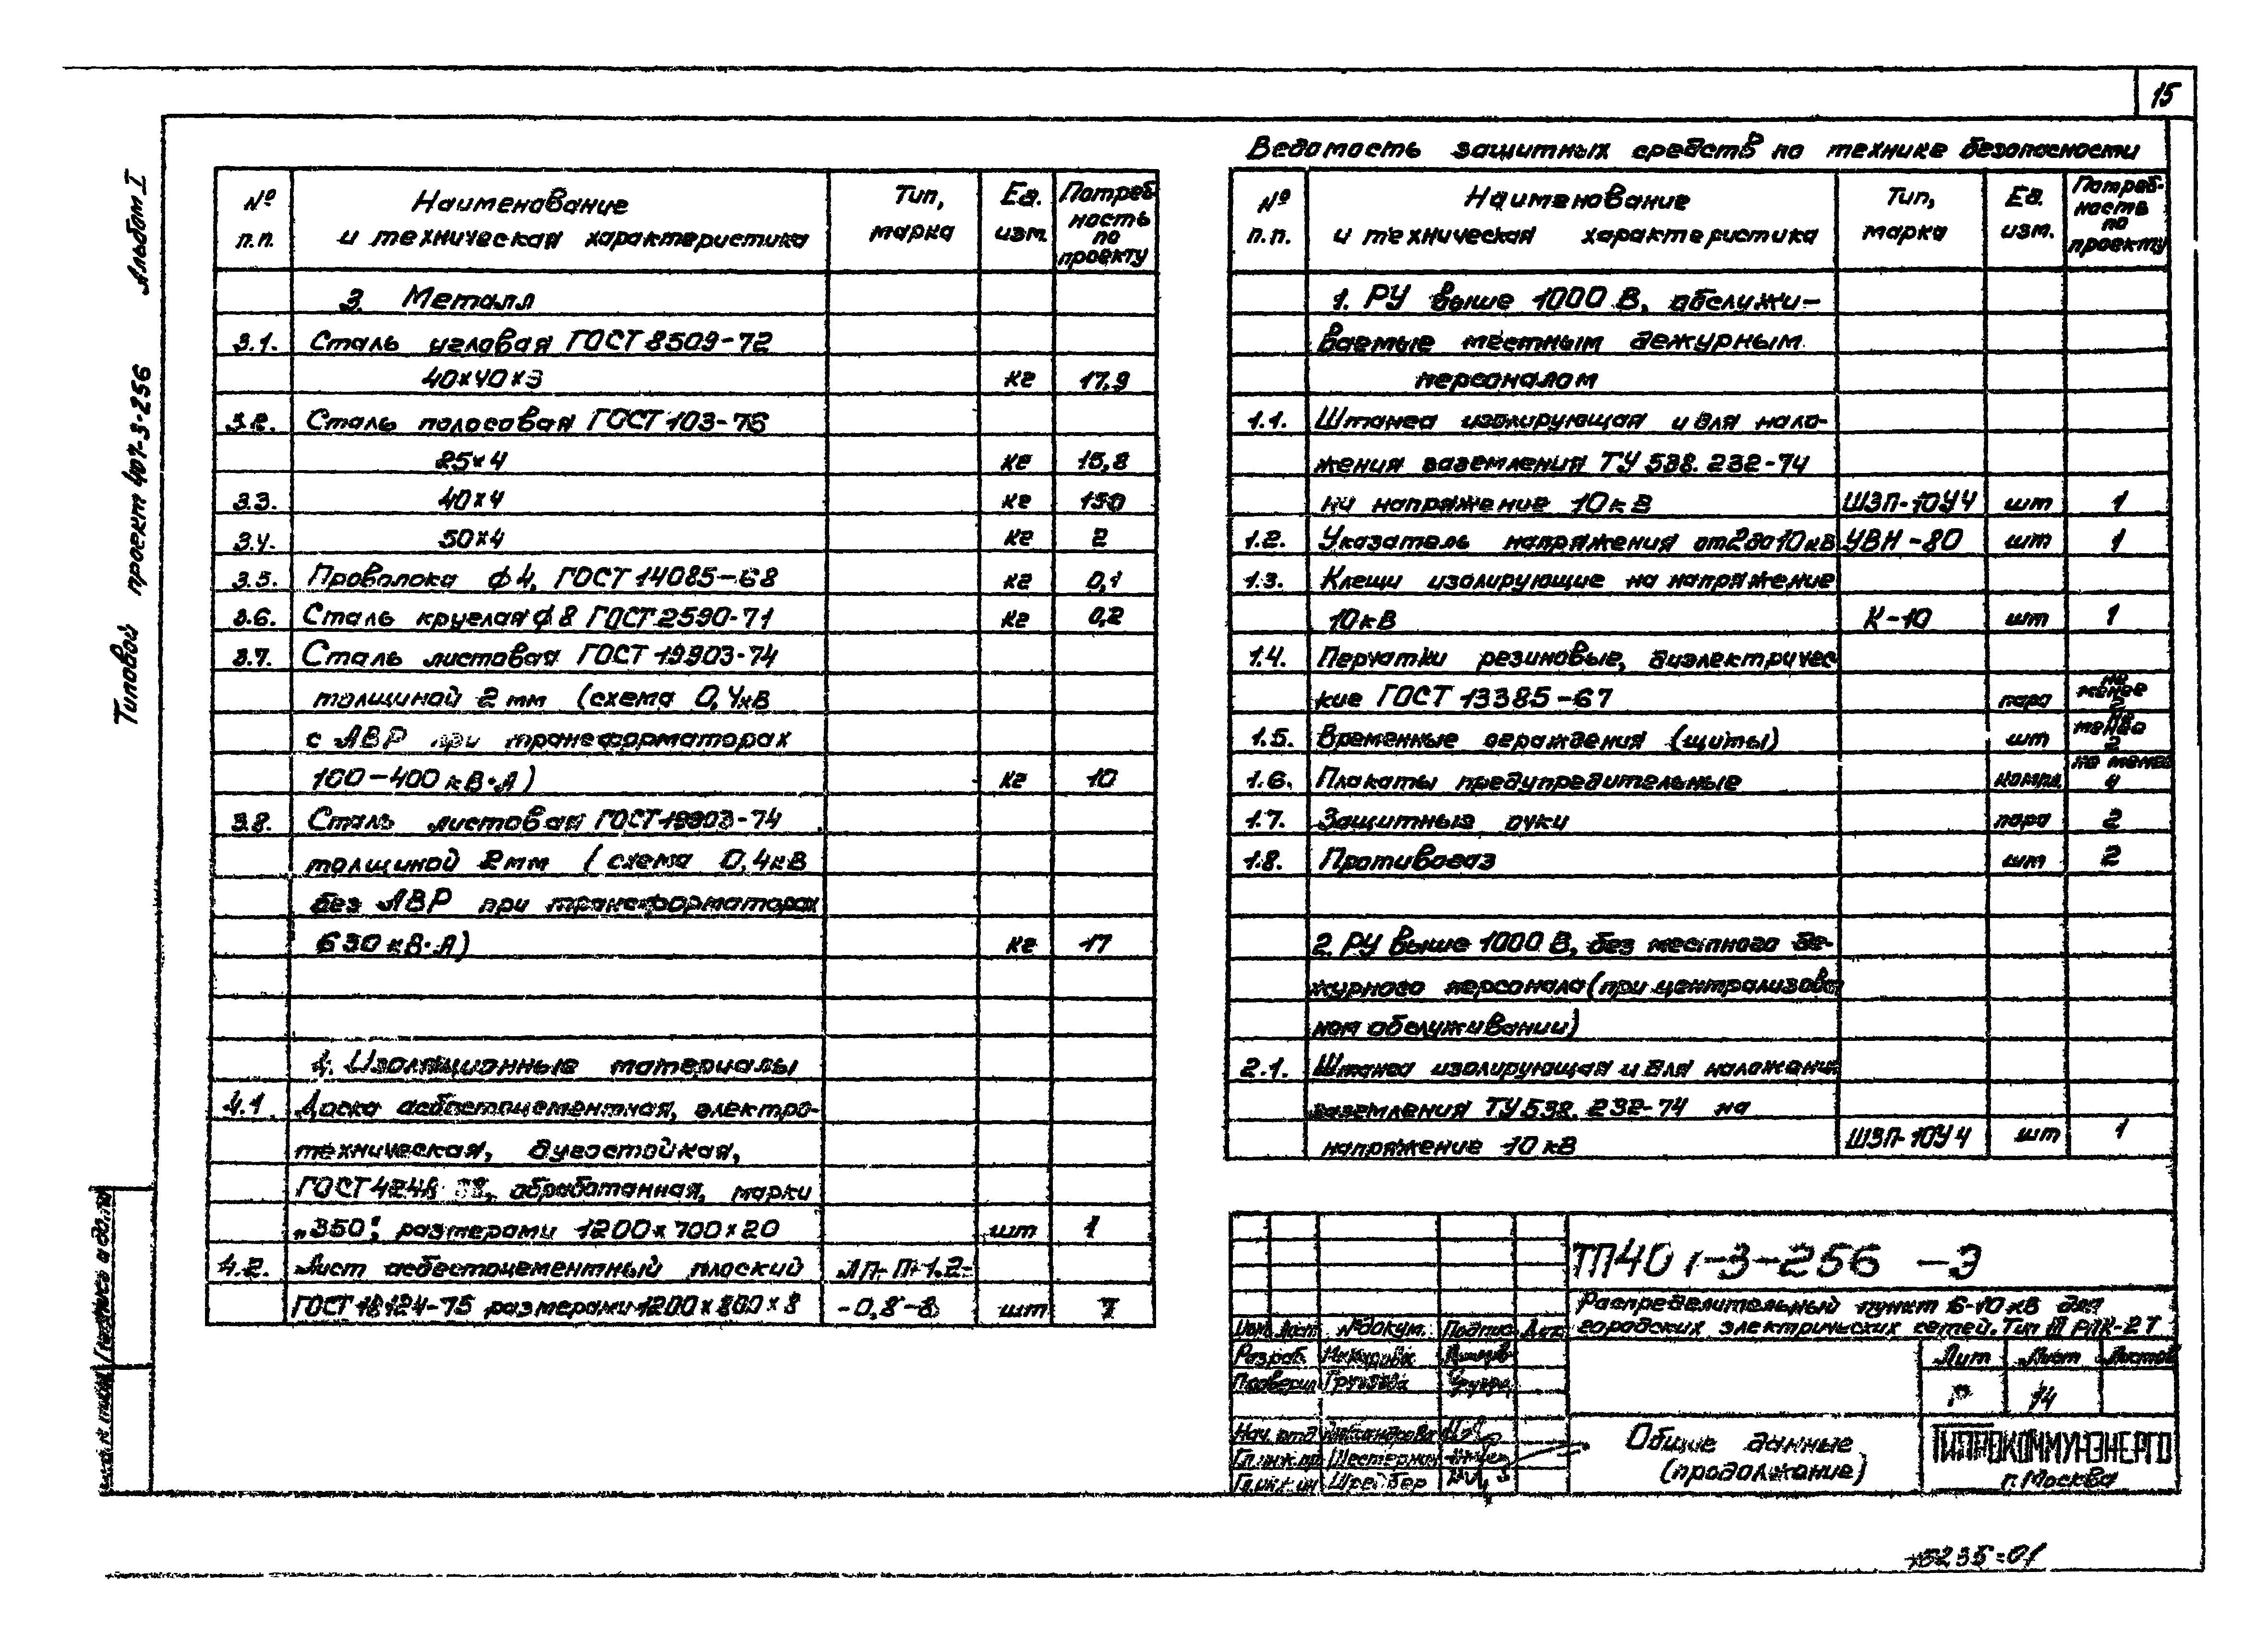 15
Альбом I
Типовой проект 407-3-256
№ п.п. Наименование и техническая характеристика Тип, марка Ед. изм. Потреб- ность по проекту
3. Металл
3.1. Сталь угловая ГОСТ 8509-72
40×40×3 кг 17,9
3.2. Сталь полосовая ГОСТ 103-76
25×4 кг 15,8
3.3. 40×4 кг 150
3.4. 50×4 кг 2
3.5. Проволока ф4, ГОСТ 14085-68 кг 0,1
3.6. Сталь круглая ф8 ГОСТ 2590-71 кг 0,2
3.7. Сталь листовая ГОСТ 19903-74
толщиной 2 мм (схема 0,4кВ
с АВР при трансформаторах
100-400 кВ·А) кг 10
3.8. Сталь листовая ГОСТ 19903-74
толщиной 2 мм (схема 0,4кВ
без АВР при трансформаторах
630 кВ·А) кг 17
4. Изоляционные материалы
4.1 Доска асбестоцементная, электро-
техническая, дугостойкая,
ГОСТ обработанная, марки
„350", размерами 1200×700×20 шт 1
4.2. Лист асбестоцементный плоский ЛП-П-1.2-
ГОСТ 18124-75 размерами 1200×800×8 -0,8-8 шт 7
Ведомость защитных средств по технике безопасности
№ п.п. Наименование и техническая характеристика Тип, марка Ед. изм. Потреб- ность по проекту
1. РУ выше 1000 В, обслужи-
ваемые местным дежурным
персоналом
1.1. Штанга изолирующая и для нало-
жения заземления ТУ 538.232-74
на напряжение 10кВ ШЗП-10У4 шт 1
1.2. Указатель напряжения от 2 до 10 кВ УВН-80 шт 1
1.3. Клещи изолирующие на напряжение
10кВ К-10 шт 1
1.4. Перчатки резиновые, диэлектричес
кие ГОСТ 13385-67 пара не менее 2
1.5. Временные ограждения (щиты) шт не менее 2
1.6. Плакаты предупредительные компл. не менее 4
1.7. Защитные очки пара 2
1.8. Противогаз шт 2
2. РУ выше 1000 В, без местного де-
журного персонала (при централизован
ном обслуживании)
2.1. Штанга изолирующая и для наложения
заземления ТУ 538.232-74 на
напряжение 10 кВ ШЗП-10У4 шт 1
ТП 407-3-256 -Э
Распределительный пункт 6-10 кВ для
городских электрических сетей. Тип III РПК-2Т
Изм. Лист № докум. Подпись Дата
Разраб.
Проверил
Нач. отд.
Гл.инж.пр. Шестерман
Шрейбер
Лит Лист Листов
Р 14
Общие данные
(продолжение)
ГИПРОКОММУНЭНЕРГО
г. Москва